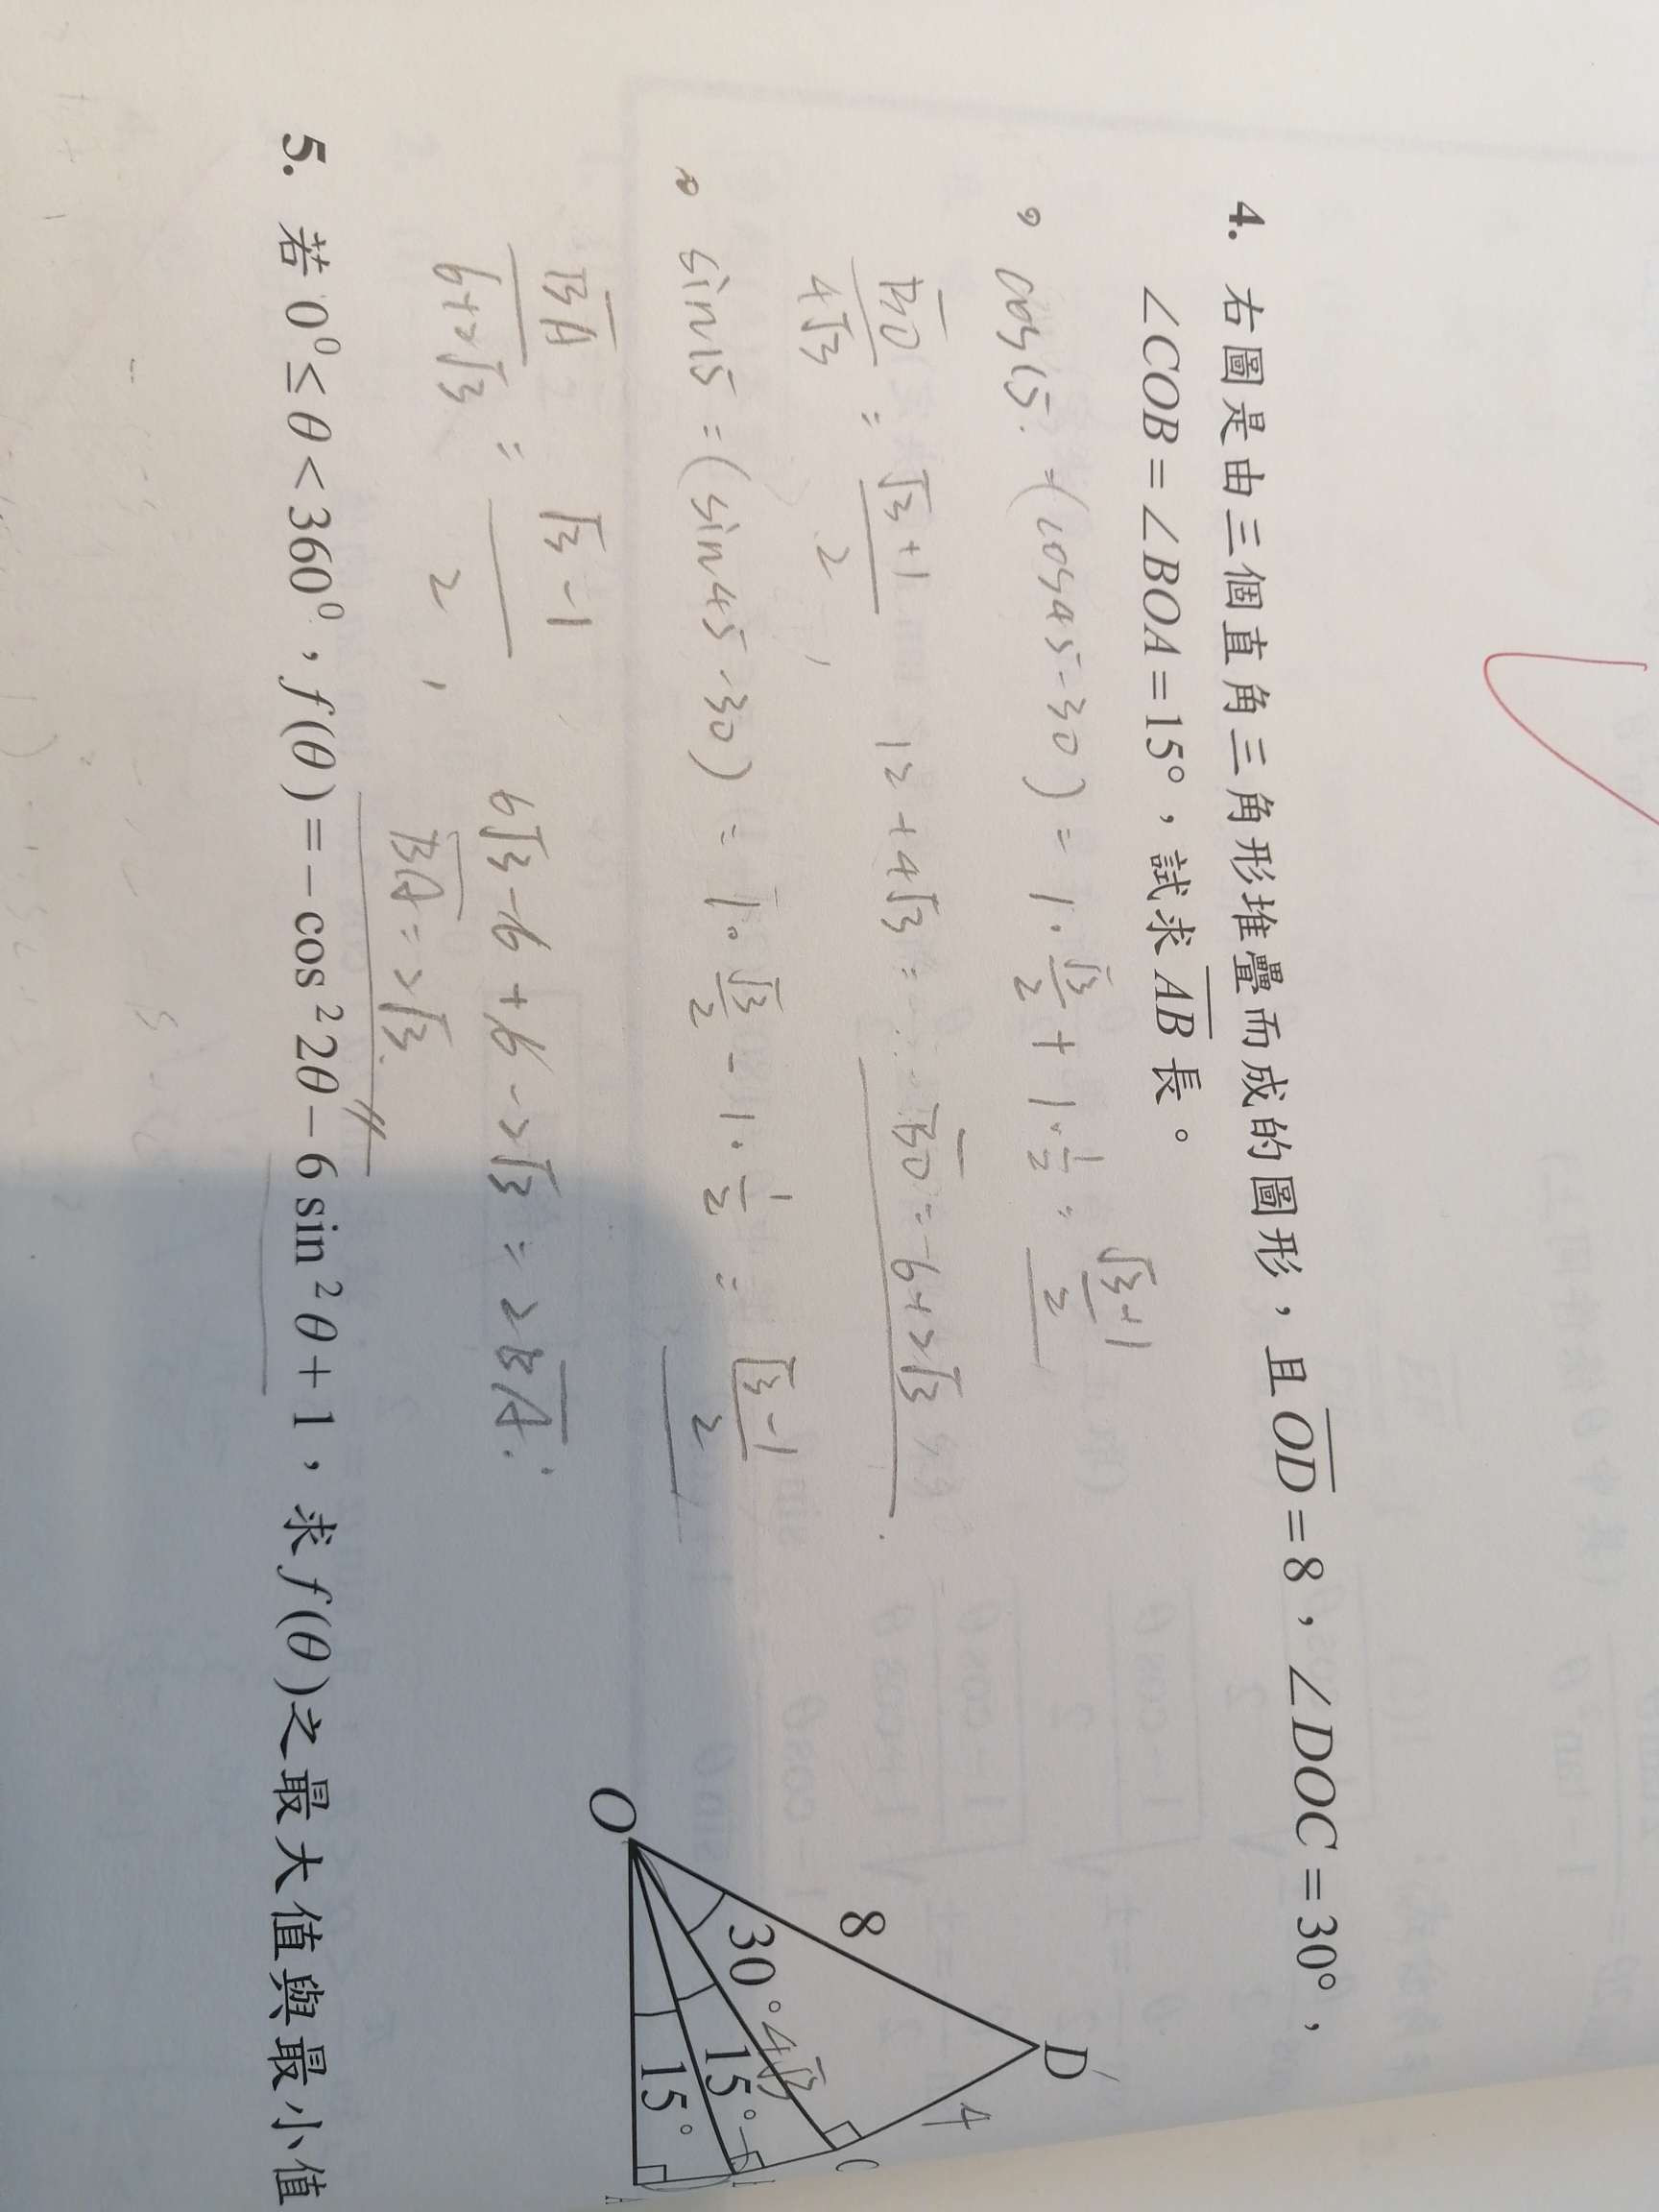 4. 右圖是由三個直角三角形堆疊而成的圖形，且OD=8，∠DOC=30°，
∠COB=∠BOA=15°，試求AB長。
cos15=(cos45-30)=1·√3/2+1·1/2=√3+1/2
BO/4√3=√3+1/2, 12+4√3= BO=6+2√3
sin15=(sin45-30)=1·√3/2-1·1/2=√3-1/2
BA/6+2√3=√3-1/2, 6√3-6+6-2√3=2BA
BA=2√3
D
8
4
30°
4√3
C
15°
O
15°
5. 若0⁰≤θ<360⁰，f(θ)=-cos²2θ-6sin²θ+1，求f(θ)之最大值與最小值